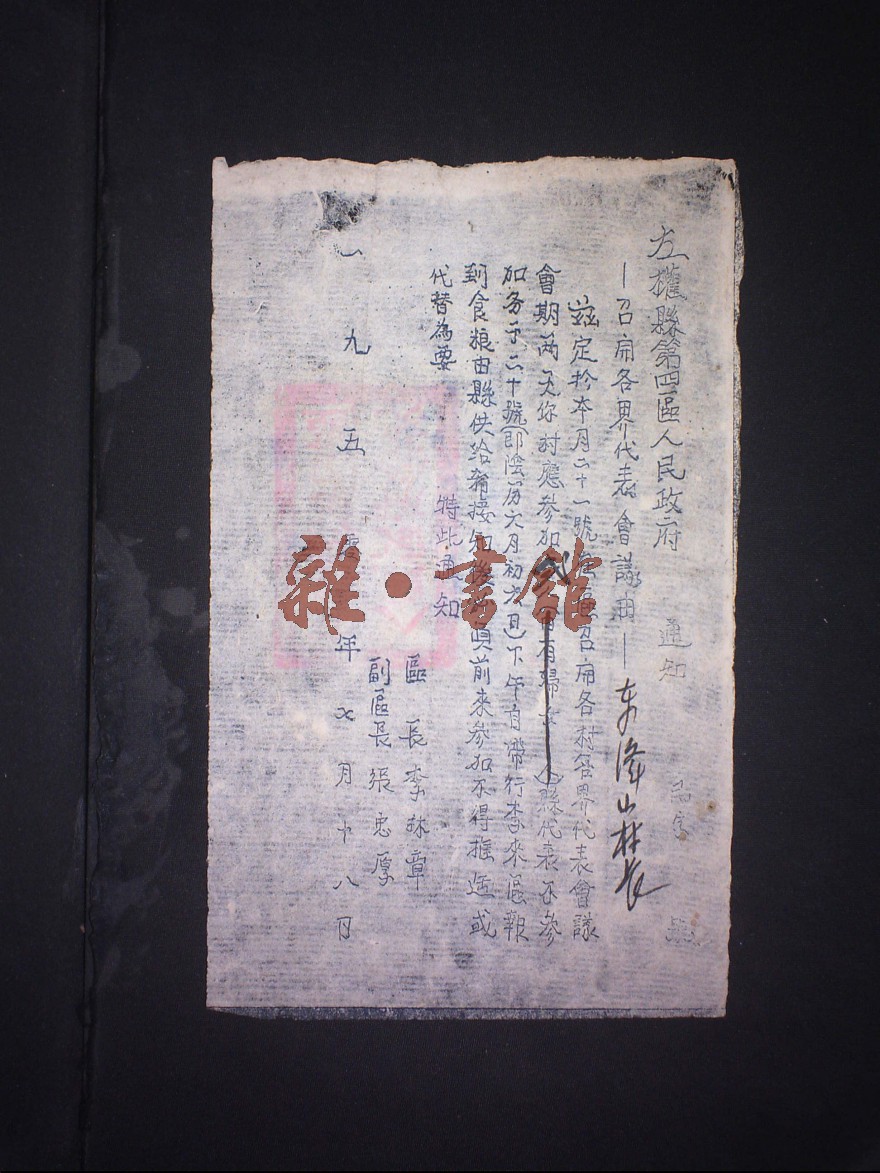 左權縣第四區人民政府 通知 民字 號
—召開各界代表會議由— 东隆山村长
茲定於本月二十一號 區召開各村各界代表會議
會期兩天你村應參加 縣代表不參
加务于二十號(即陰历六月初六日)下午自帶行李來區報
到食粮由縣供給希接知後 前來參加不得推迟或
代替為要 特此通知
區 長 李林章
副區長 張忠厚
一九五 年七月十八日
雜·書館